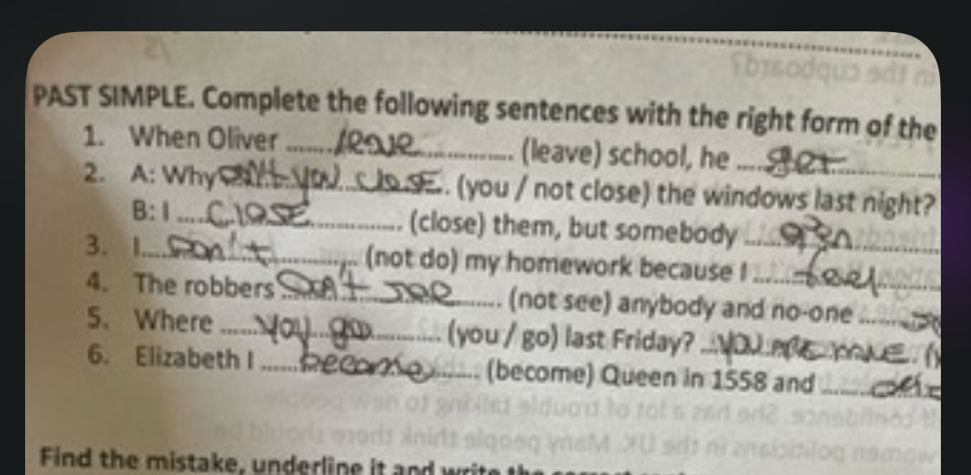 PAST SIMPLE. Complete the following sentences with the right form of the
1. When Oliver ....... leave ............... (leave) school, he ..... get ...............
2. A: Why don't you close. (you / not close) the windows last night?
B: I .... close ............... (close) them, but somebody ....... open ...............
3. I..... Don't ............... (not do) my homework because I ....... feel .......
4. The robbers Don't see ....... (not see) anybody and no-one .......
5. Where ...... you go ............ (you / go) last Friday? ...
6. Elizabeth I ...... become ....... (become) Queen in 1558 and .......
Find the mistake, underline it and write the